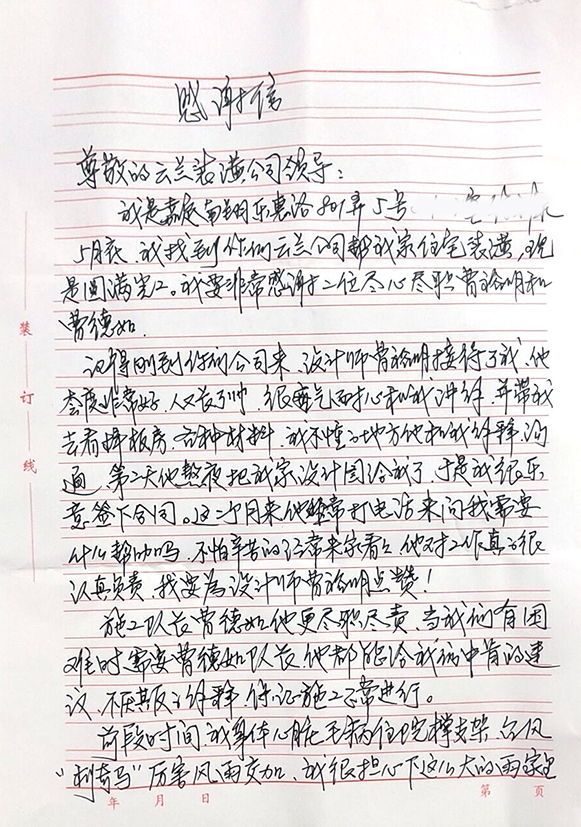 感谢信
尊敬的云兰装潢公司领导：
我是嘉定南翔乐惠路801弄5号
5月底，我找到你们云兰公司帮我家住宅装潢，现
是圆满完工。我要非常感谢二位尽心尽职曹裕明和
曹德如.
记得刚到你们公司来，设计师曹裕明接待了我，他
态度非常好，人又长得帅，很客气耐心和我讲解，并带我
去看样板房，各种材料，我不懂的地方他和我解释，沟
通，第二天他熬夜把我家设计图给我了，于是我很乐
意签下合同。这二个月来他经常打电话来问我需要
什么帮助吗，不怕辛苦的经常来家看看，他对工作真的很
认真负责，我要为设计师曹裕明点赞！
施工队长曹德如他更尽职尽责，当我们有困
难时需要曹德如队长，他都能给我们中肯的建
议，不厌其烦的解释，保证施工正常进行。
前段时间我身体心脏毛病住院撑支架，台风
“利奇马”厉害风雨交加，我很担心下这么大的雨家里
装
订
线
年 月 日
第 页